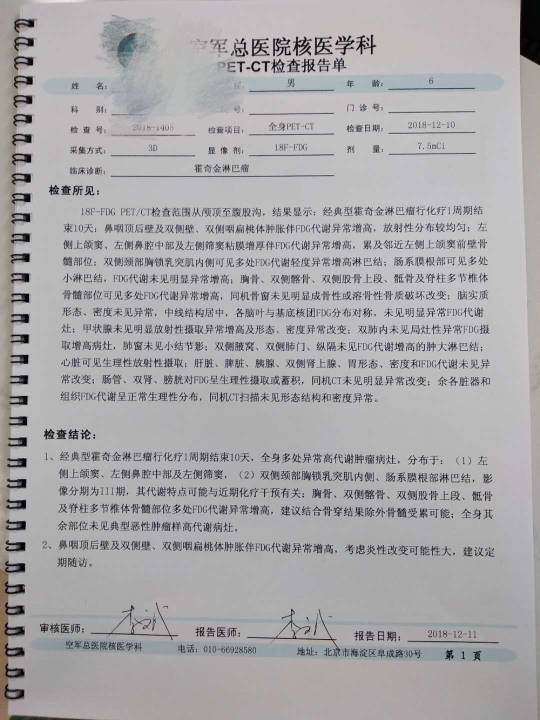 空军总医院核医学科
PET-CT检查报告单
姓 名: 男 年 龄: 6
科 别: 号: 门诊号:
检查号: 2018-1408 检查项目: 全身PET-CT 检查日期: 2018-12-10
采集方式: 3D 显像剂: 18F-FDG 剂 量: 7.5mCi
临床诊断: 霍奇金淋巴瘤
检查所见:
18F-FDG PET/CT检查范围从颅顶至腹股沟，结果显示：经典型霍奇金淋巴瘤行化疗1周期结
束10天：鼻咽顶后壁及双侧壁、双侧咽扁桃体肿胀伴FDG代谢异常增高，放射性分布较均匀；左
侧上颌窦、左侧鼻腔中部及左侧筛窦粘膜增厚伴FDG代谢异常增高，累及邻近左侧上颌窦前壁骨
髓部位；双侧颈部胸锁乳突肌内侧可见多处FDG代谢轻度异常增高淋巴结；肠系膜根部可见多处
小淋巴结，FDG代谢未见明显异常增高；胸骨、双侧髂骨、双侧股骨上段、骶骨及脊柱多节椎体
骨髓部位可见多处FDG代谢异常增高，同机骨窗未见明显成骨性或溶骨性骨质破坏改变；脑实质
形态、密度未见异常，中线结构居中，各脑叶与基底核团FDG分布对称，未见明显异常FDG代谢
灶；甲状腺未见明显放射性摄取异常增高及形态、密度异常改变；双肺内未见局灶性异常FDG摄
取增高病灶，肺窗未见小结节影；双侧腋窝、双侧肺门、纵隔未见FDG代谢增高的肿大淋巴结；
心脏可见生理性放射性摄取；肝脏、脾脏、胰腺、双侧肾上腺、胃形态、密度和FDG代谢未见异
常改变；肠管、双肾、膀胱对FDG呈生理性摄取或蓄积，同机CT未见明显异常改变；余各脏器和
组织FDG代谢呈正常生理性分布，同机CT扫描未见形态结构和密度异常。
检查结论:
1、经典型霍奇金淋巴瘤行化疗1周期结束10天，全身多处异常高代谢肿瘤病灶，分布于：（1）左
侧上颌窦、左侧鼻腔中部及左侧筛窦，（2）双侧颈部胸锁乳突肌内侧、肠系膜根部淋巴结，影
像分期为III期，其代谢特点可能与近期化疗干预有关；胸骨、双侧髂骨、双侧股骨上段、骶骨
及脊柱多节椎体骨髓部位多处FDG代谢异常增高，建议结合骨穿结果除外骨髓受累可能；全身其
余部位未见典型恶性肿瘤样高代谢病灶。
2、鼻咽顶后壁及双侧壁、双侧咽扁桃体肿胀伴FDG代谢异常增高，考虑炎性改变可能性大，建议定
期随访。
审核医师: 报告医师: 报告日期: 2018-12-11
空军总医院核医学科 电话：010-66928580 地址：北京市海淀区阜成路30号 第 1 页